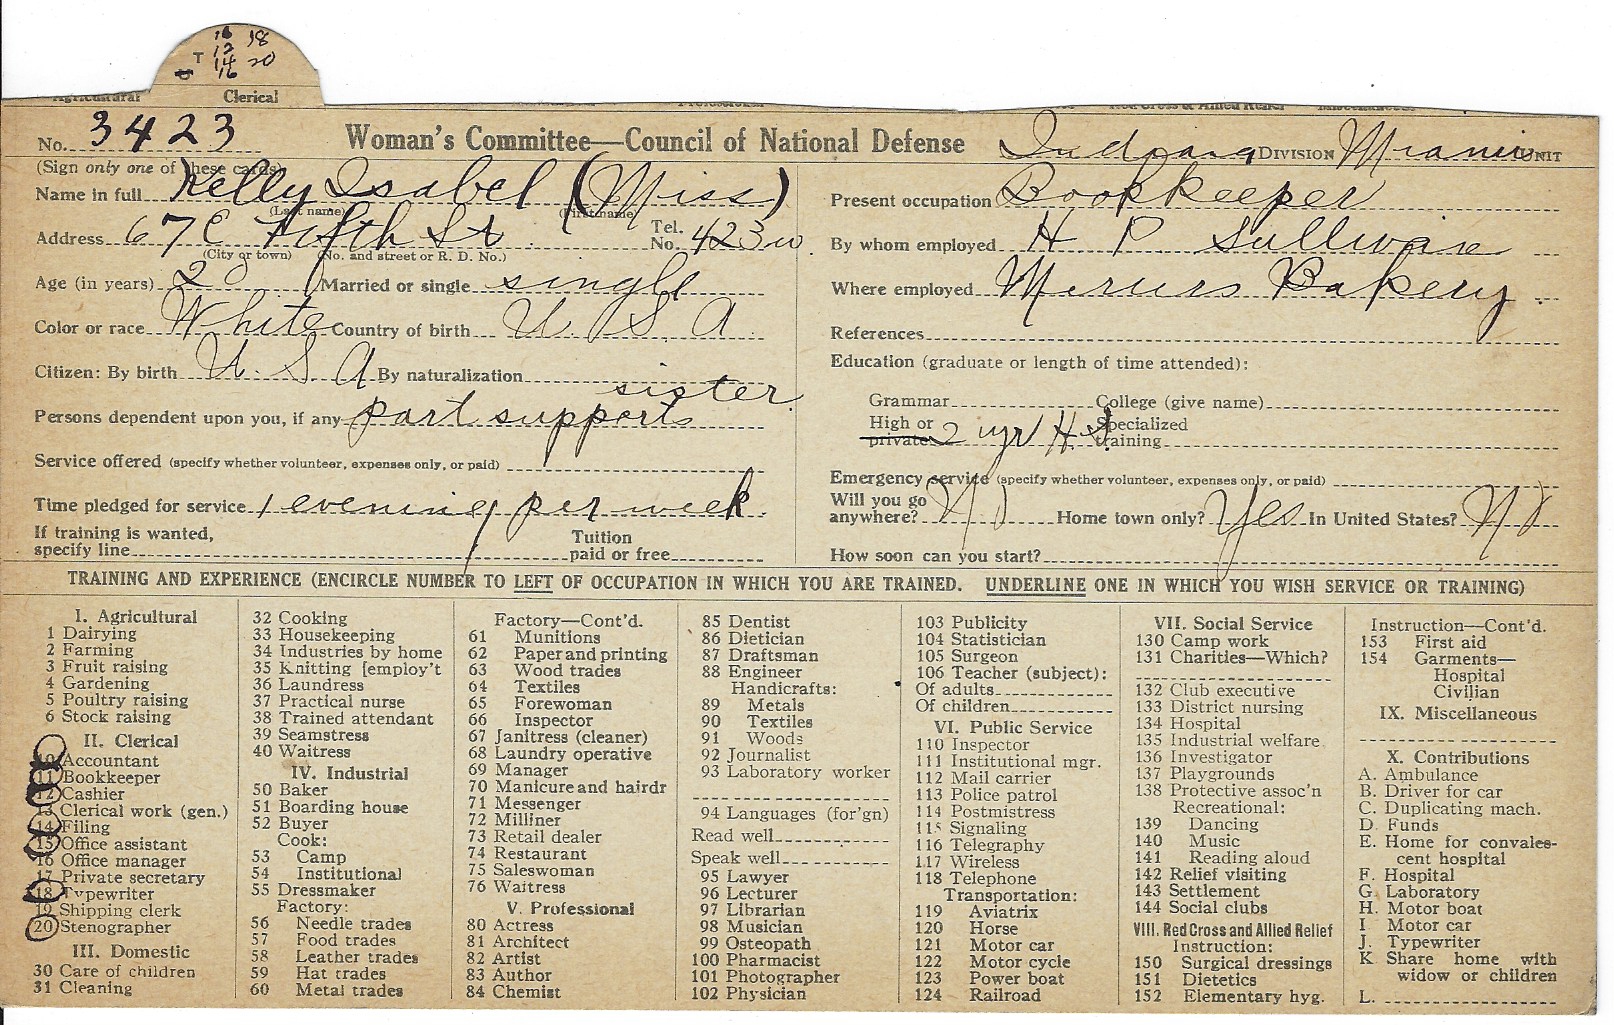 16 18
12
T 14 20
16
Agricultural Clerical
No. 3423 Woman's Committee—Council of National Defense Indiana DIVISION Miami UNIT
(Sign only one of these cards)
Name in full Kelly Isabel (Miss)
(Last name) (First name)
Address 67 E Fifth St Tel. No. 423 w
(City or town) (No. and street or R. D. No.)
Age (in years) 20 Married or single single
Color or race White Country of birth U. S. A.
Citizen: By birth U. S. A By naturalization
Persons dependent upon you, if any part supports sister
Service offered (specify whether volunteer, expenses only, or paid)
Time pledged for service 1 evening per week
If training is wanted, specify line Tuition paid or free
Present occupation Bookkeeper
By whom employed H P Sullivan
Where employed Bakery
References
Education (graduate or length of time attended):
Grammar College (give name)
High or private 2 yr H. S. Specialized training
Emergency service (specify whether volunteer, expenses only, or paid)
Will you go anywhere? No Home town only? Yes In United States? No
How soon can you start?
TRAINING AND EXPERIENCE (ENCIRCLE NUMBER TO LEFT OF OCCUPATION IN WHICH YOU ARE TRAINED. UNDERLINE ONE IN WHICH YOU WISH SERVICE OR TRAINING)
I. Agricultural
1 Dairying
2 Farming
3 Fruit raising
4 Gardening
5 Poultry raising
6 Stock raising
II. Clerical
10 Accountant
11 Bookkeeper
12 Cashier
13 Clerical work (gen.)
14 Filing
15 Office assistant
16 Office manager
17 Private secretary
18 Typewriter
19 Shipping clerk
20 Stenographer
III. Domestic
30 Care of children
31 Cleaning
32 Cooking
33 Housekeeping
34 Industries by home
35 Knitting [employ't
36 Laundress
37 Practical nurse
38 Trained attendant
39 Seamstress
40 Waitress
IV. Industrial
50 Baker
51 Boarding house
52 Buyer
Cook:
53 Camp
54 Institutional
55 Dressmaker
Factory:
56 Needle trades
57 Food trades
58 Leather trades
59 Hat trades
60 Metal trades
Factory—Cont'd.
61 Munitions
62 Paper and printing
63 Wood trades
64 Textiles
65 Forewoman
66 Inspector
67 Janitress (cleaner)
68 Laundry operative
69 Manager
70 Manicure and hairdr
71 Messenger
72 Milliner
73 Retail dealer
74 Restaurant
75 Saleswoman
76 Waitress
V. Professional
80 Actress
81 Architect
82 Artist
83 Author
84 Chemist
85 Dentist
86 Dietician
87 Draftsman
88 Engineer
Handicrafts:
89 Metals
90 Textiles
91 Woods
92 Journalist
93 Laboratory worker
94 Languages (for'gn)
Read well
Speak well
95 Lawyer
96 Lecturer
97 Librarian
98 Musician
99 Osteopath
100 Pharmacist
101 Photographer
102 Physician
103 Publicity
104 Statistician
105 Surgeon
106 Teacher (subject):
Of adults
Of children
VI. Public Service
110 Inspector
111 Institutional mgr.
112 Mail carrier
113 Police patrol
114 Postmistress
115 Signaling
116 Telegraphy
117 Wireless
118 Telephone
Transportation:
119 Aviatrix
120 Horse
121 Motor car
122 Motor cycle
123 Power boat
124 Railroad
VII. Social Service
130 Camp work
131 Charities—Which?
132 Club executive
133 District nursing
134 Hospital
135 Industrial welfare
136 Investigator
137 Playgrounds
138 Protective assoc'n
Recreational:
139 Dancing
140 Music
141 Reading aloud
142 Relief visiting
143 Settlement
144 Social clubs
VIII. Red Cross and Allied Relief
Instruction:
150 Surgical dressings
151 Dietetics
152 Elementary hyg.
Instruction—Cont'd.
153 First aid
154 Garments—
Hospital
Civilian
IX. Miscellaneous
X. Contributions
A. Ambulance
B. Driver for car
C. Duplicating mach.
D. Funds
E. Home for convales-
cent hospital
F. Hospital
G. Laboratory
H. Motor boat
I Motor car
J. Typewriter
K Share home with
widow or children
L.